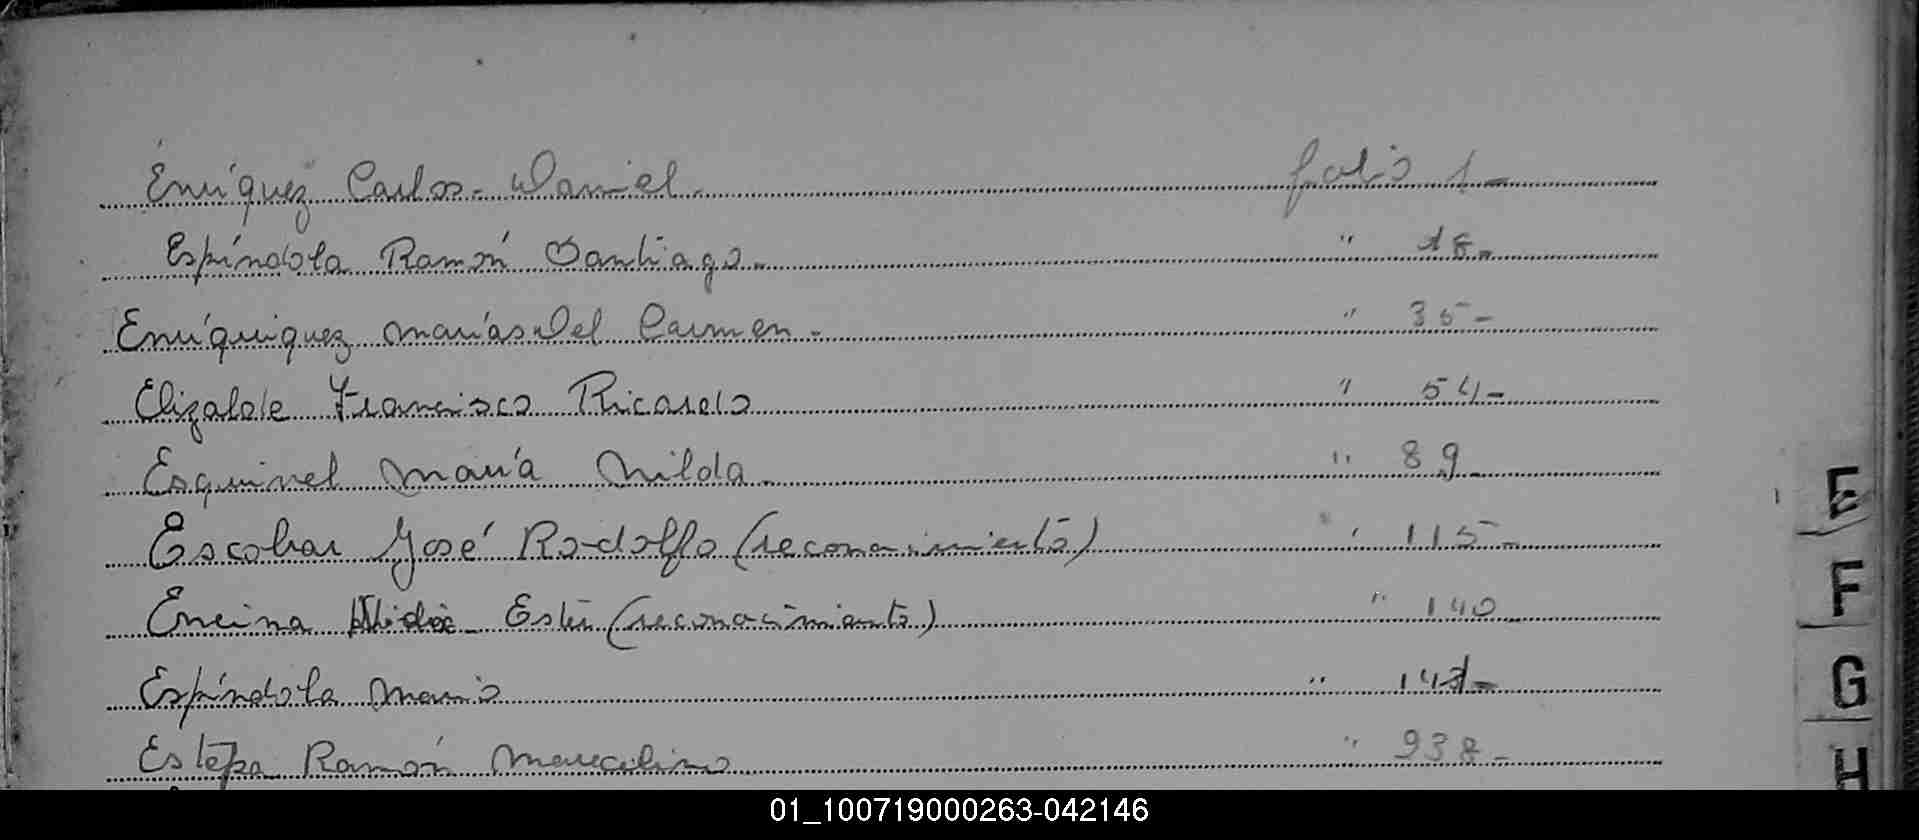 Enríquez Carlos. Daniel. folio 1-
Espíndola Ramón Santiago. " 18-
Enríquiquez María del Carmen. " 35-
Elizalde Francisco Ricardo " 54-
Esquivel María Nilda. " 89-
Escobar José Rodolfo (reconocimiento) " 115-
Encina Ester (reconocimiento) " 140
Espíndola Mario "
Estepa Ramón Marcelino " 938-
E
F
G
H
01_100719000263-042146